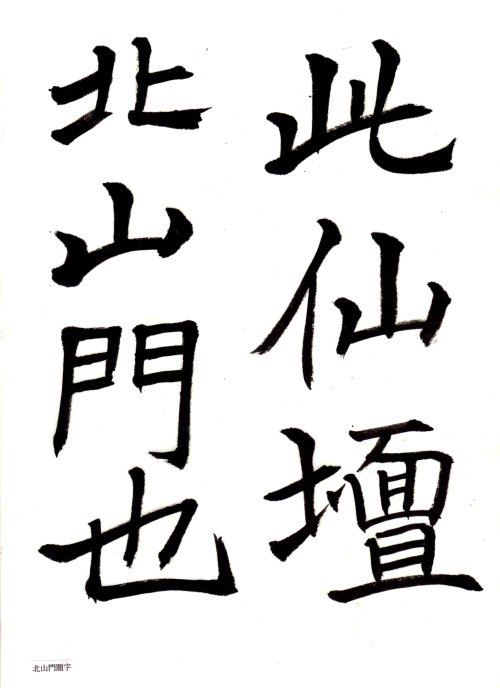 此仙壇
北山門也
北山門題字